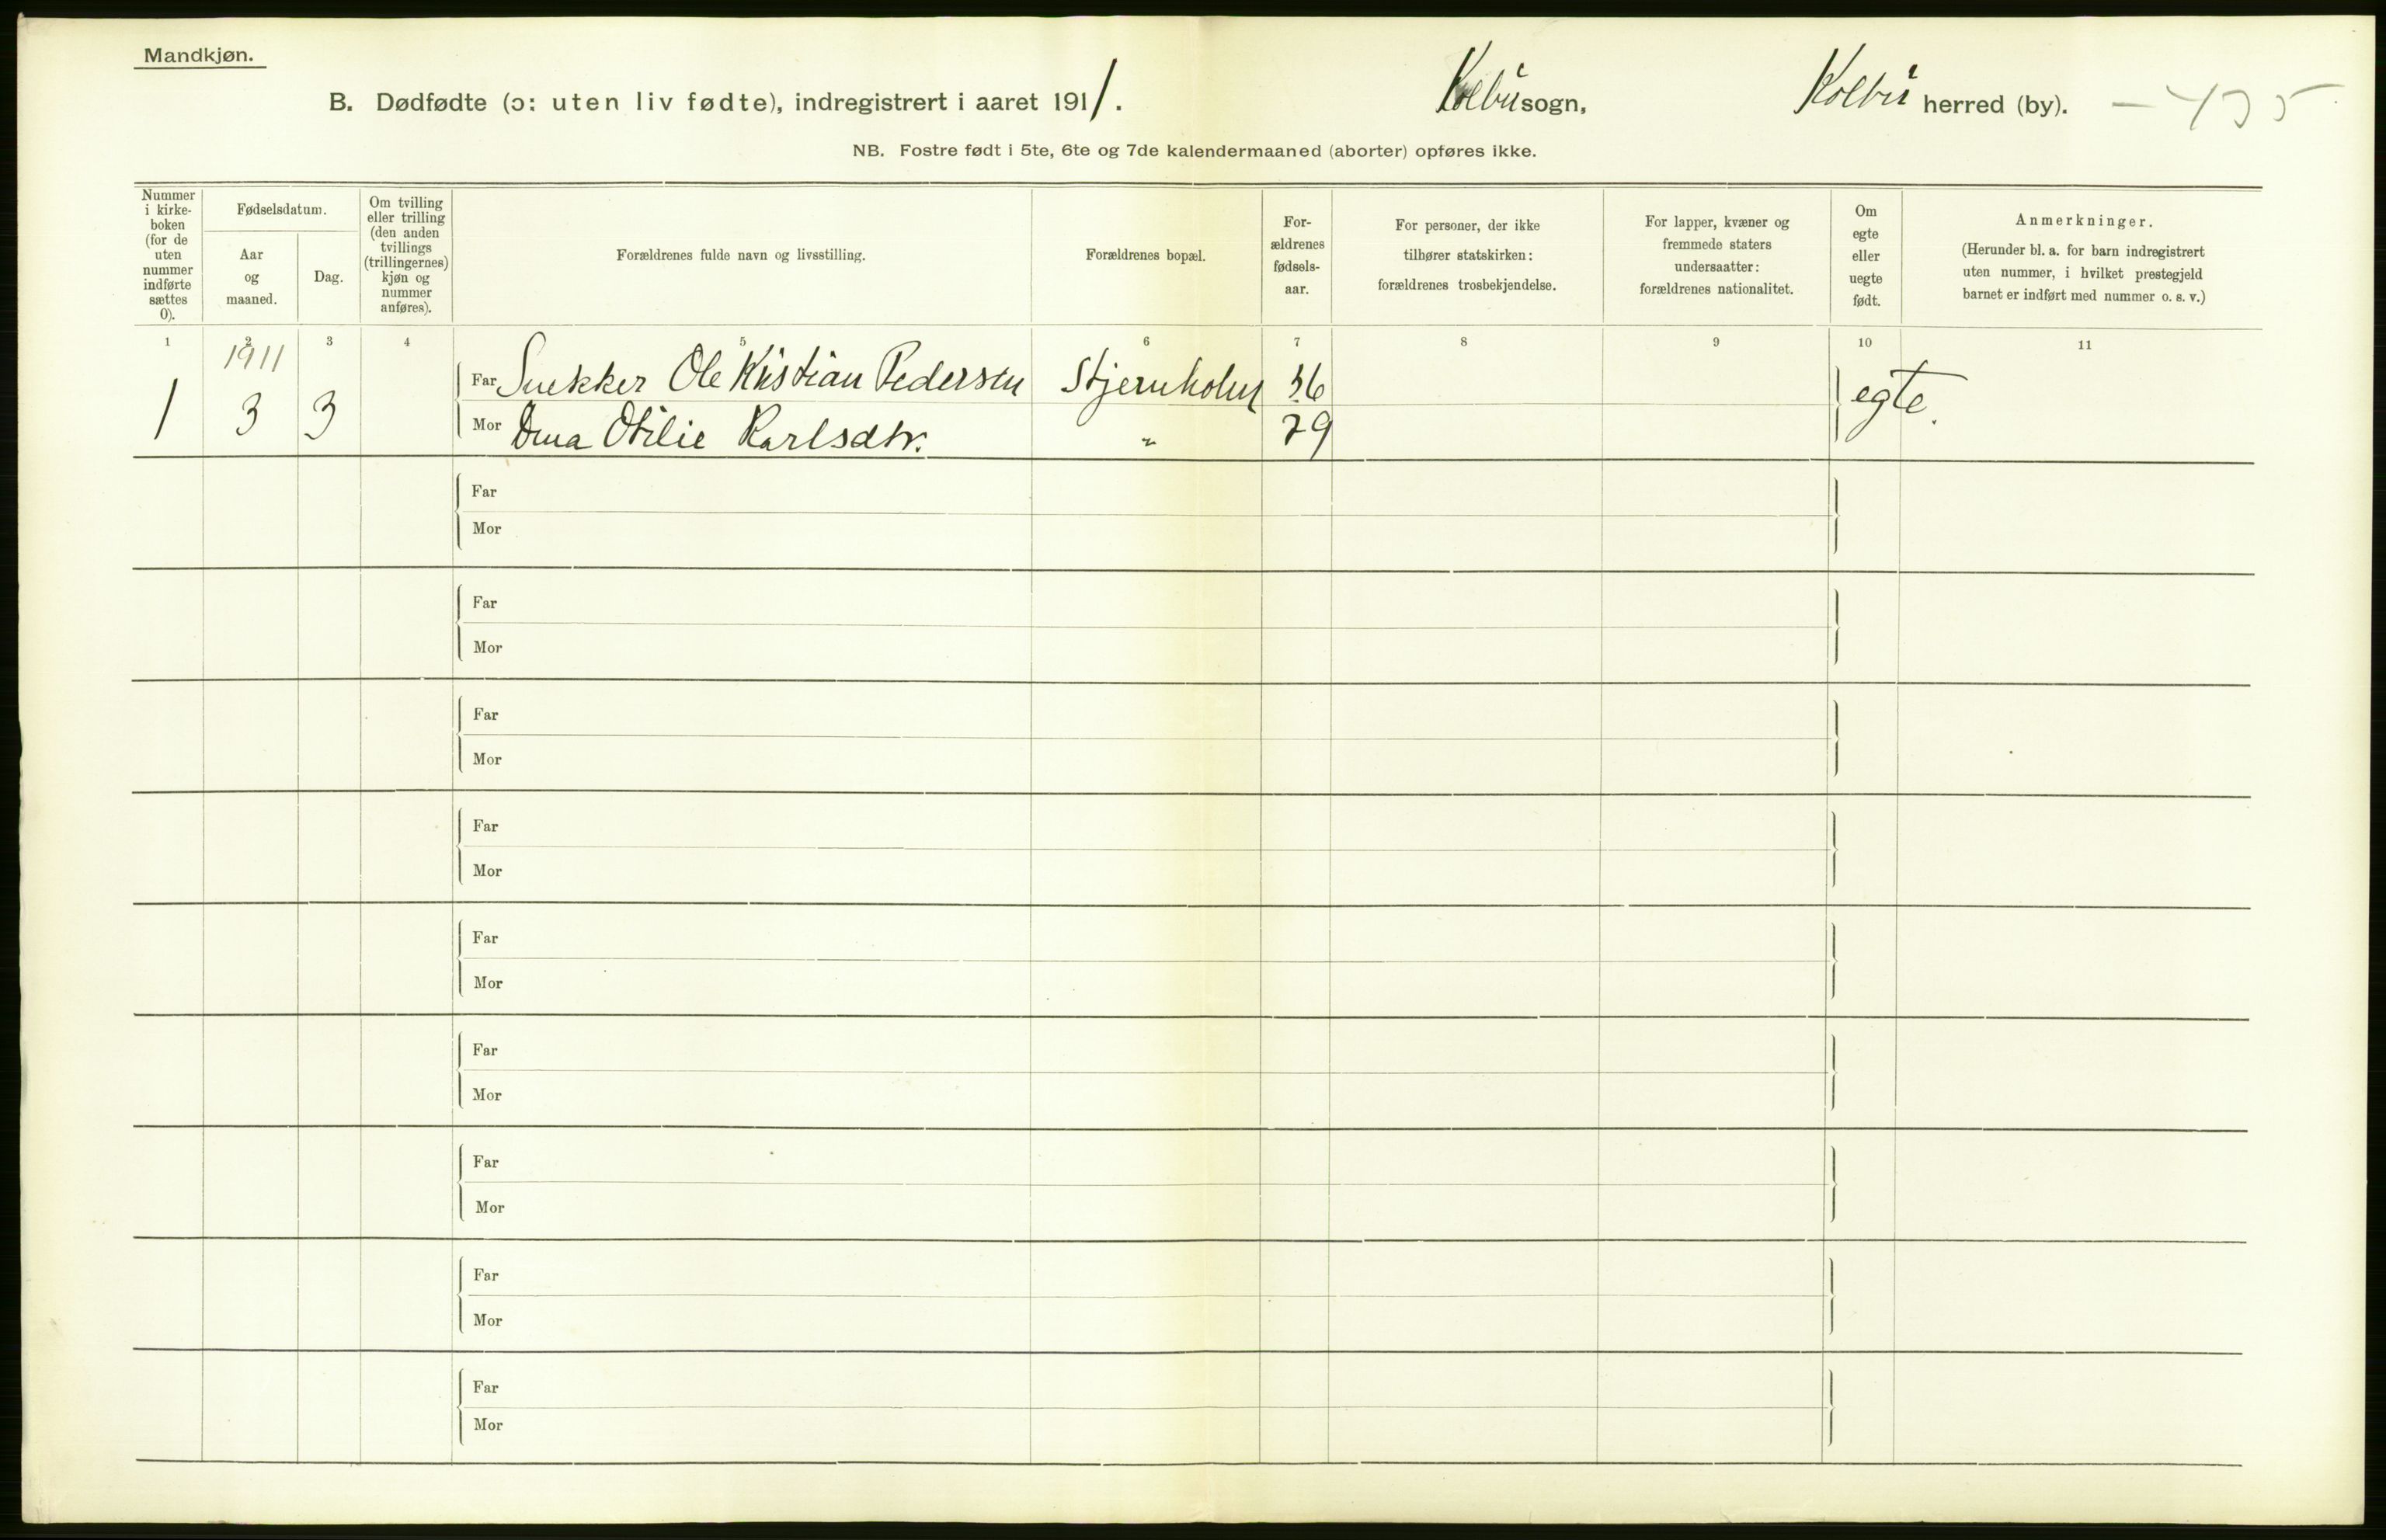 Mandkjøn.
B. Dødfødte (ɔ: uten liv fødte), indregistrert i aaret 1911. Kolbu sogn, Kolbu herred (by).
NB. Fostre født i 5te, 6te og 7de kalendermaaned (aborter) opføres ikke.
Nummer
i kirke-
boken
(for de
uten
nummer
indførte
sættes
0).
Fødselsdatum.
Aar
og
maaned.
Dag.
Om tvilling
eller trilling
(den anden
tvillings
(trillingernes)
kjøn og
nummer
anføres).
Forældrenes fulde navn og livsstilling.
Forældrenes bopæl.
For-
ældrenes
fødsels-
aar.
For personer, der ikke
tilhører statskirken:
forældrenes trosbekjendelse.
For lapper, kvæner og
fremmede staters
undersaatter:
forældrenes nationalitet.
Om
egte
eller
uegte
født.
Anmerkninger.
(Herunder bl. a. for barn indregistrert
uten nummer, i hvilket prestegjeld
barnet er indført med nummer o. s. v.)
1 2 3 4 5 6 7 8 9 10 11
1911
1 3 3
Far Snekker Ole Kristian Pedersen Stjernholm 56 egte.
Mor Otilie Karlsdtr. " 79
Far
Mor
Far
Mor
Far
Mor
Far
Mor
Far
Mor
Far
Mor
Far
Mor
Far
Mor
Far
Mor